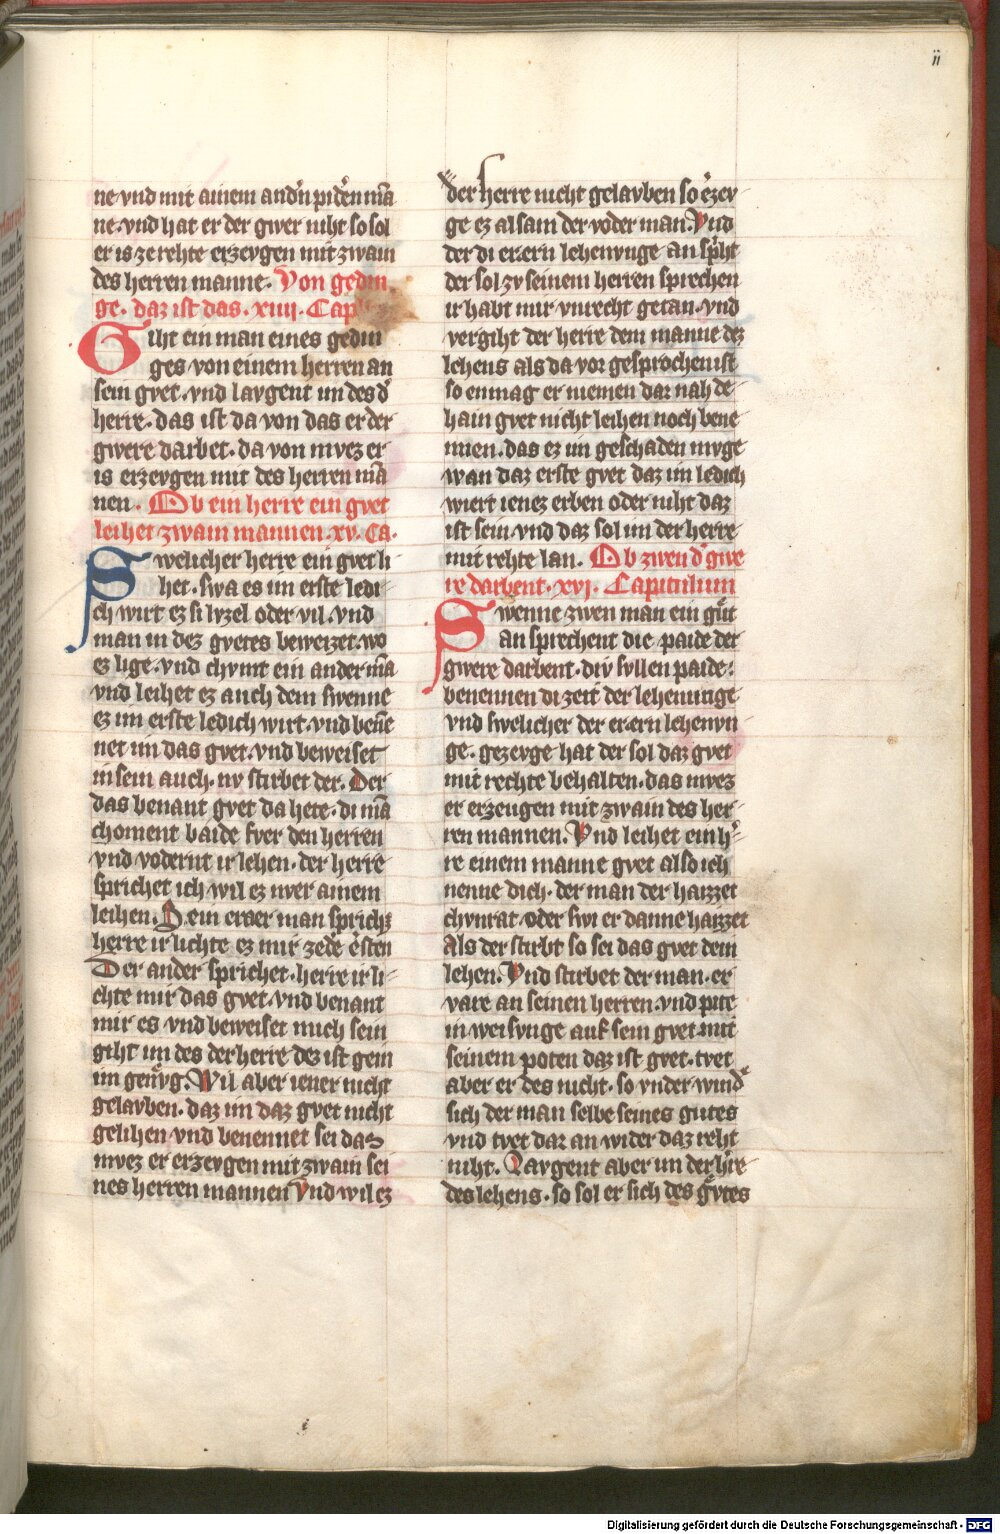 ii
ne·vnd mit ainem andn̄ pidēn mā
ne·vnd hat er der gwer niht so sol
er is ze rehte erzevgen mit zwain
des herren manne· Von gedin
ge· daz ist das· xiiii· Cap
Giht ein man eines gedin
ges von einem herren an
sein gvet·vnd lavgent im des d'
herre·das ist da von das er der
gwere darbet·da von mvez er
is erzevgen mit des herren mā
nen· Ob ein herre ein gvet
leihet zwain mannen·xv·Ca·
Swelicher herre ein gvet li
het·swa es im erste ledi
ch wirt ez si lvzel oder vil·vnd
man in dez gvetes beweizet·wo
ez lige·vnd chvmt ein ander mā
vnd leihet ez auch dem swenne
ez im erste ledich wirt·vnd ben̄e
net im das gvet·vnd beweiset
in sein auch·nv stirbet der· Der
das benant gvet da hete·di mā
choment baide fver den herren
vnd vodernt ir lehen·der herre
sprichet ich wil ez nver ainem
leihen· D·ein erber man sprich
herre ir lichte ez mir zed'e e'sten
Der ander sprichet·herre ir li-
chte mir das gvet·vnd benant
mir es vnd beweiset mich sein
giht im des der herre dez ist gein
im genvg· Wil aber iener nicht
gelavben·daz im daz gvet nicht
gelihen vnd benennet sei das
mvez er erzevgen mit zwain sei
nes herren mannen Vnd wil ez
der herre nicht gelavben so erzev-
ge ez alsam der voder man· Vnd
der di er·ern lehenvnge an sp'ht
der sol zv seinem herren sprechen
ir habt mir vnrecht getan·vnd
vergiht der herre dem manne dez
lehens als da vor gesprochen ist
so enmag er niemen dar nah de-
hain gvet nicht leihen noch bene
nnen·das ez im geschaden mvge
wan daz erste gvet daz im ledich
wiert ienez erben oder niht daz
ist sein·vnd daz sol im der herre
mit rehte lan· Ob zwen d' gwe
re darbent·xvj· Capitulum
Swenne zwen man ein gu̇t
an sprechent die paide der
gwere darbent·div svllen paide:
benennen di zeit der lehenunge
vnd swelicher der er·ern lehenvn
ge·gezevge hat der sol daz gvet
mit rechte behalten·das mvez
er erzeugen mit zwain des her-
ren mannen· Vnd leihet ein h'-
re einem manne gvet also ich
nenne dich·der man der haizzet
chvnrat·oder swi er danne haizzet
Als der stirbt so sei das gvet dein
lehen· Vnd stirbet der man·er
vare an seinen herren·vnd pite
in weisvnge auf sein gvet·mit
seinem poten daz ist gvet·tvet
aber er des nicht·so vnder wind'
sich der man selbe seines gutes
vnd tvet dar an wider daz reht
niht· Lavgent aber im der h're
des lehens·so sol er sich des gu̇tes
Digitalisierung gefördert durch die Deutsche Forschungsgemeinschaft - DFG